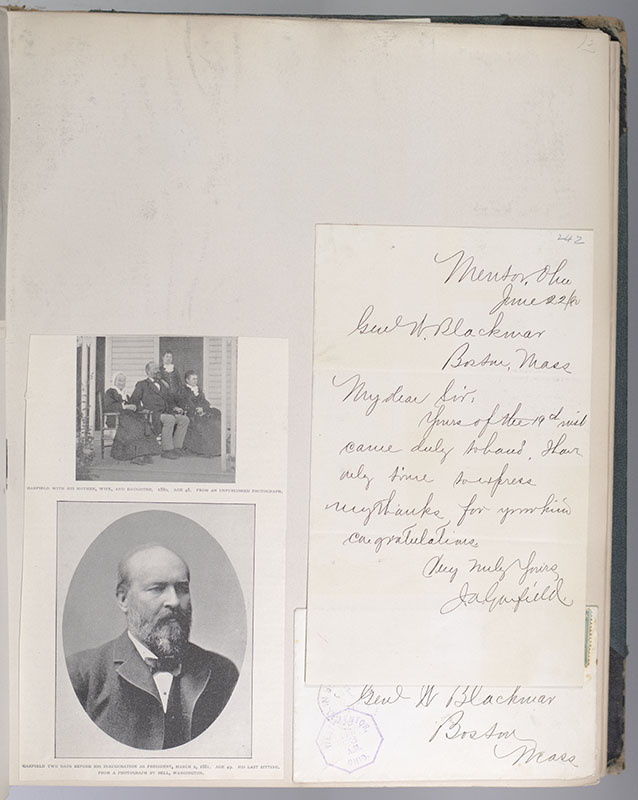 12
242
Mentor, Ohio
June 22/80
Genl W. Blackmar
Boston, Mass
My dear Sir,
Yours of the 19th inst
came duly to hand. I have
only time to express
my thanks for your kind
congratulations
Very truly Yours,
J A Garfield.
GARFIELD WITH HIS MOTHER, WIFE, AND DAUGHTER, 1880. AGE 48. FROM AN UNPUBLISHED PHOTOGRAPH.
GARFIELD TWO DAYS BEFORE HIS INAUGURATION AS PRESIDENT, MARCH 2, 1881. AGE 49. HIS LAST SITTING.
FROM A PHOTOGRAPH BY BELL, WASHINGTON.
Genl W Blackmar
Boston
Mass
MENTOR,
OHIO.